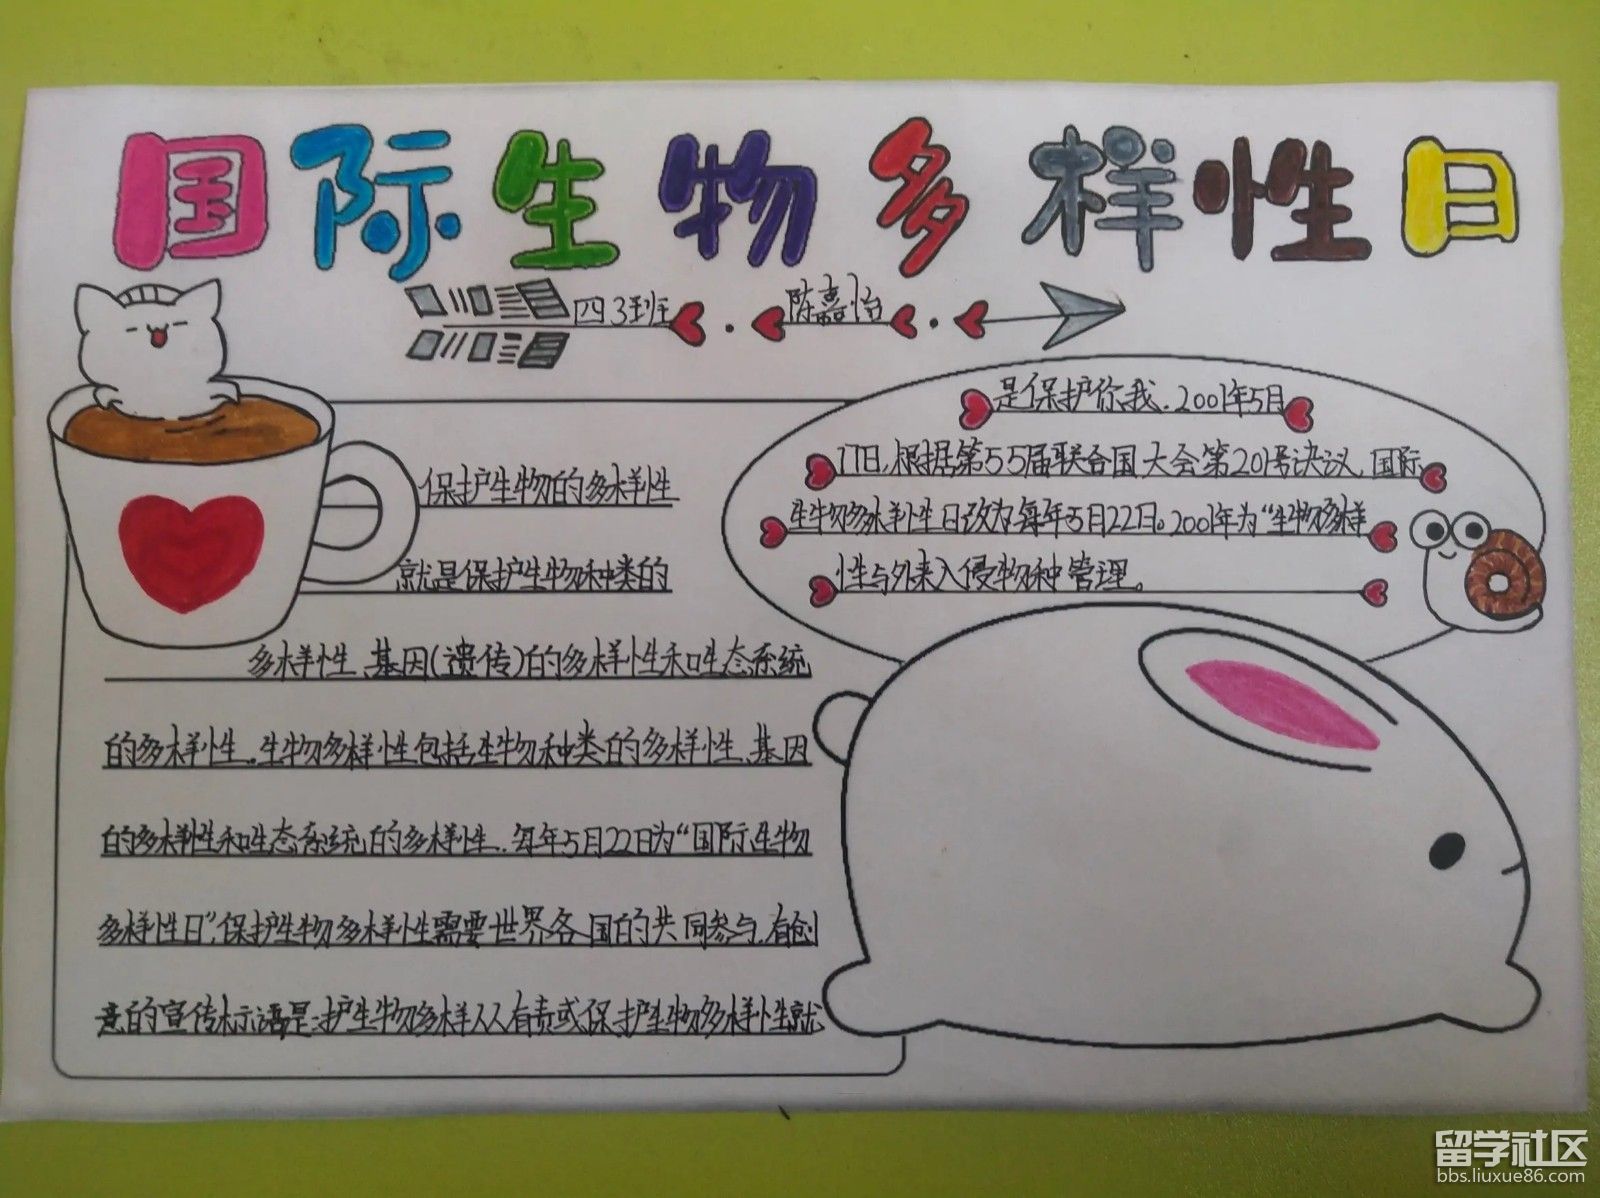 国际生物多样性日
四3班
陈嘉怡
保护生物的多样性
就是保护生物种类的
多样性、基因(遗传)的多样性和生态系统
的多样性。生物多样性包括生物种类的多样性、基因
的多样性和生态系统的多样性.每年5月22日为“国际生物
多样性日”,保护生物多样性需要世界各国的共同参与.有创
意的宣传标语是:护生物多样人人有责或保护生物多样性就
是保护你我.2001年5月
17日,根据第55届联合国大会第201号决议,国际
生物多样性日改为每年5月22日。2001年为“生物多样
性与外来入侵物种管理。
留学社区
bbs.liuxue86.com